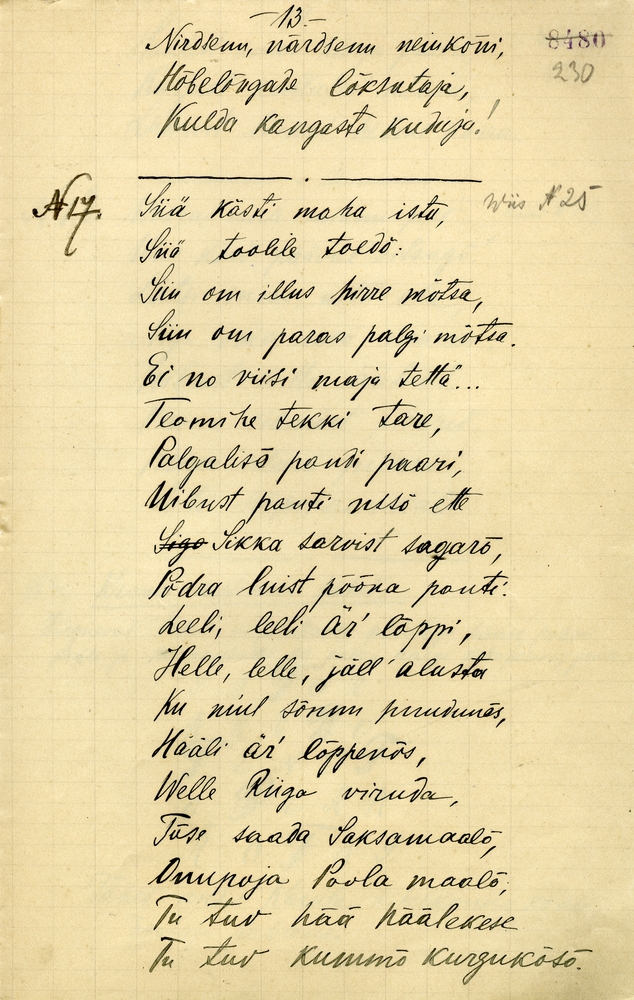 -13.-
8480
230
Nirdsenu, närdsenu neiukõni,
Hõbelõngade lõksutaja,
Kulda kangaste kuduja!
№ 17.
Wiis № 25
Siiä kästi maha istu,
Siiä toolile toedõ:
Siin om illus hirre mõtsa,
Siin om paras palgi mõtsa.
Ei no viisi maja tettä...
Teomihe tekki tare,
Palgalisõ pandi paari,
Uibust panti ussõ ette
Sikka sarvist sagarõ,
Põdra luist pööna panti.
Leeli, leeli är' lõppi,
Helle, lelle, jäll' alusta
Ku niul sõnnu puudunõs,
Hääli är' lõppenõs,
Welle Riiga viruda,
Tõse saada Saksamaalõ,
Onupoja Poola maalõ;
Tu tuv hää häälekese
Tu tuv kummõ kurgukõsõ.